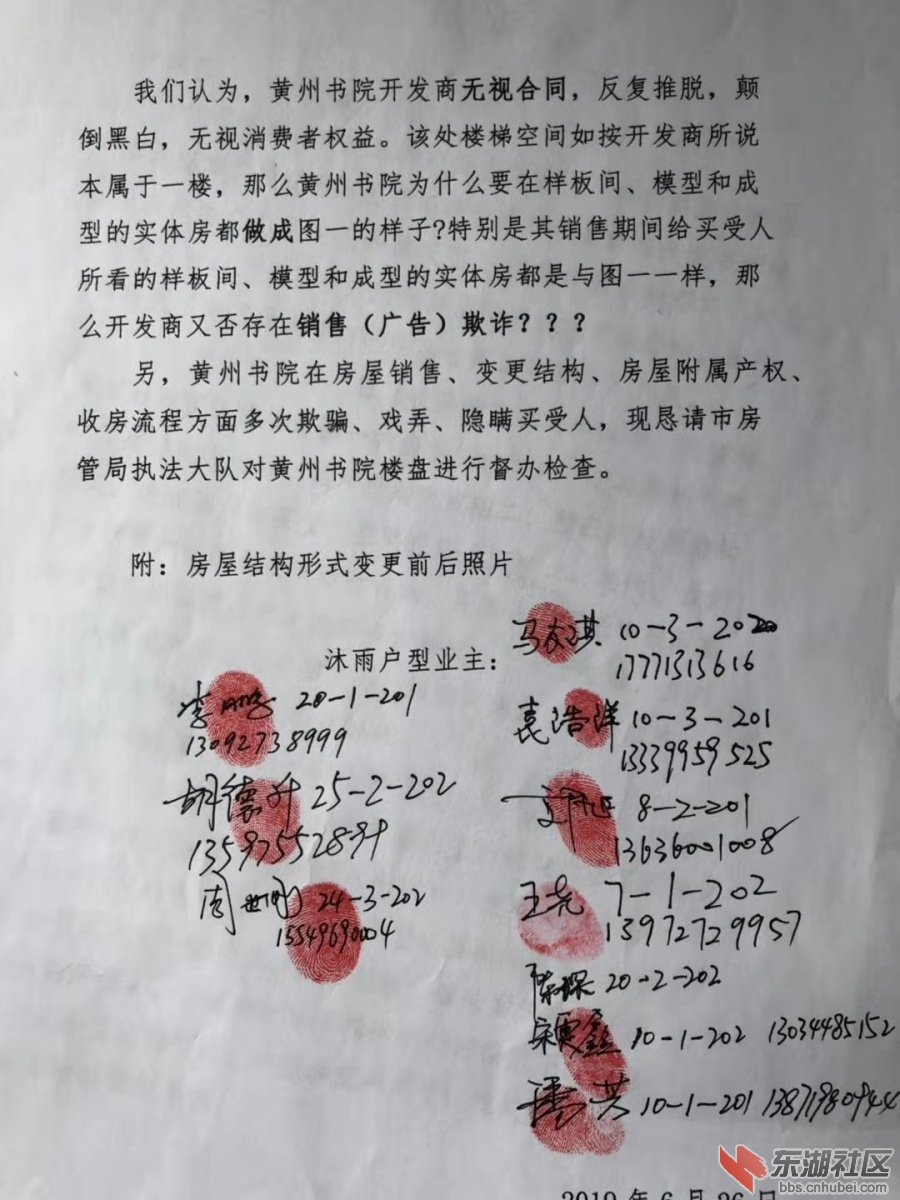 我们认为，黄州书院开发商无视合同，反复推脱，颠
倒黑白，无视消费者权益。该处楼梯空间如按开发商所说
本属于一楼，那么黄州书院为什么要在样板间、模型和成
型的实体房都做成图一的样子?特别是其销售期间给买受人
所看的样板间、模型和成型的实体房都是与图一一样，那
么开发商又否存在销售（广告）欺诈？？？
另，黄州书院在房屋销售、变更结构、房屋附属产权、
收房流程方面多次欺骗、戏弄、隐瞒买受人，现恳请市房
管局执法大队对黄州书院楼盘进行督办检查。
附：房屋结构形式变更前后照片
沐雨户型业主：
马友琪 10-3-202
17771313616
李鹏 20-1-201
13092738999
袁浩洋 10-3-201
13339959525
胡德升 25-2-202
13597552899
8-2-201
13636001008
周世刚 24-3-202
15549690004
王尧 7-1-202
13972729957
陈琛 20-2-202
宋雯鑫 10-1-202 13034485152
10-1-201 13871980944
2019年6月26日
东湖社区
bbs.cnhubei.com